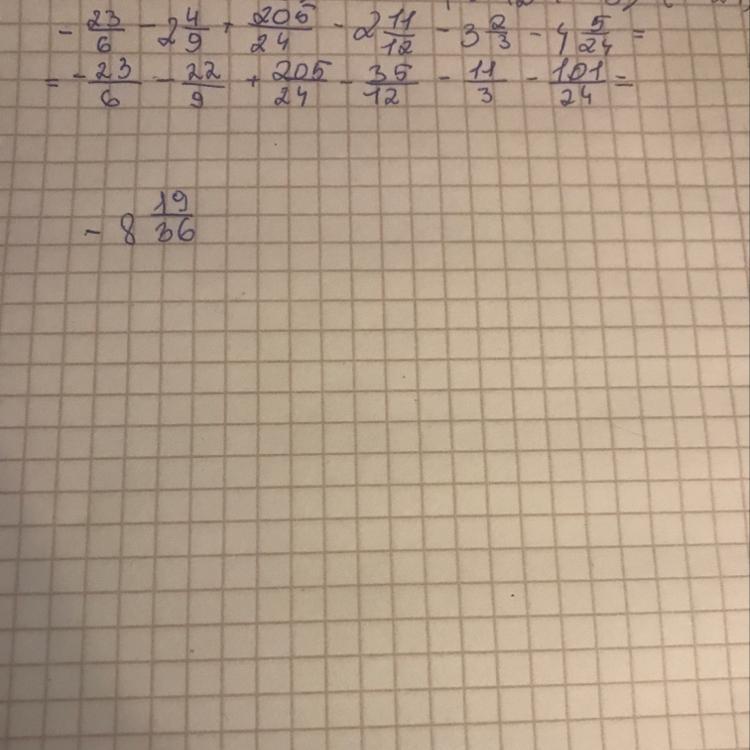 - 23/6 - 2 4/9 + 205/24 - 2 11/12 - 3 2/3 - 4 5/24 =
= - 23/6 - 22/9 + 205/24 - 35/12 - 11/3 - 101/24 =
- 8 19/36